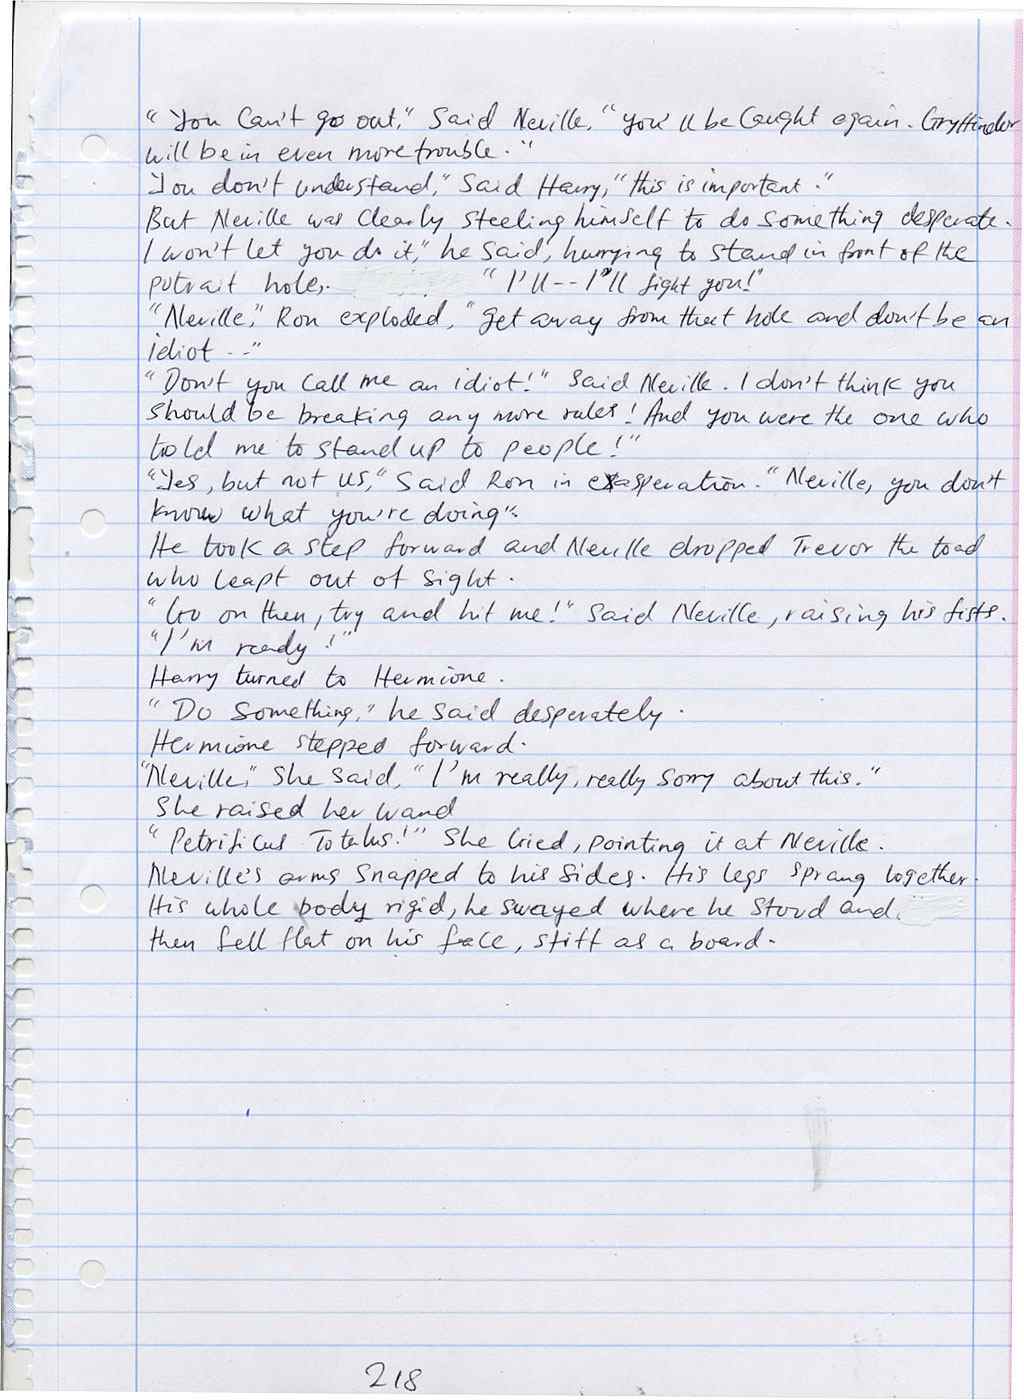 "You can't go out," said Neville, "you'll be caught again. Gryffindor
will be in even more trouble."
You don't understand," said Harry, "this is important."
But Neville was clearly steeling himself to do something desperate.
I won't let you do it," he said, hurrying to stand in front of the
potrait hole. "I'll -- I'll fight you!"
"Neville," Ron exploded, "get away from that hole and don't be an
idiot --"
"Don't you call me an idiot!" said Neville. I don't think you
should be breaking any more rules! And you were the one who
told me to stand up to people!"
"Yes, but not us," said Ron in exasperation. "Neville, you don't
know what you're doing".
He took a step forward and Neville dropped Trevor the toad
who leapt out of sight.
"Go on then, try and hit me!" said Neville, raising his fists.
"I'm ready!"
Harry turned to Hermione.
"Do something," he said desperately.
Hermione stepped forward.
"Neville," she said, "I'm really, really sorry about this."
She raised her wand
"Petrificus Totalus!" she cried, pointing it at Neville.
Neville's arms snapped to his sides. His legs sprang together.
His whole body rigid, he swayed where he stood and
then fell flat on his face, stiff as a board.
218